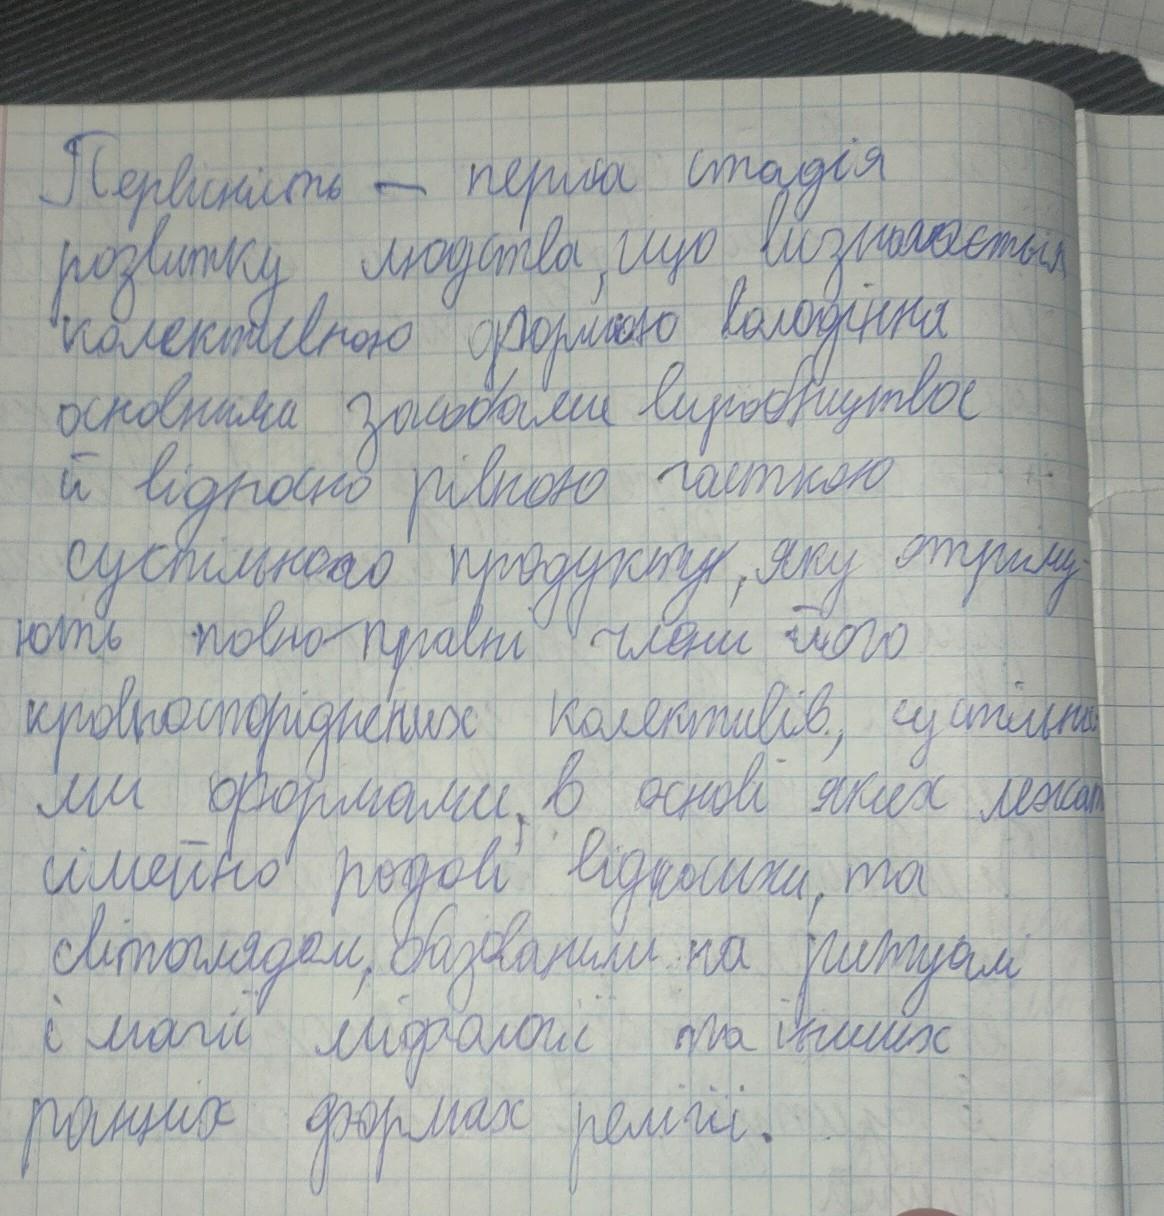 Первісність — перша стадія
розвитку людства, що визначається
колективною формою володіння
основними засобами виробництва
й відносно рівною часткою
суспільного продукту, яку отриму-
ють повноправні члени його
кровноспоріднених колективів, суспільни-
ми формами, в основі яких лежать
сімейно родові відносини, та
світоглядом, базованим на ритуалі
і магії міфології та інших
ранніх формах релігії.